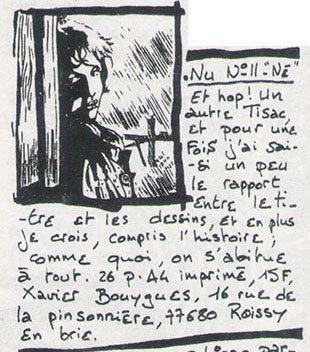 Nu N°11 "Né"
Et hop! Un
autre Tisac,
et pour une
fois j'ai sai-
-si un peu
le rapport
entre le ti-
-tre et les dessins, et en plus
je crois, compris l'histoire;
comme quoi, on s'habitue
à tout. 26 p. A4 imprimé, 15F,
Xavier Bouygues, 16 rue de
la pinsonnière, 77680 Roissy
en brie.